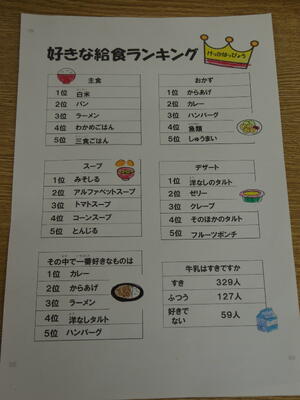 好きな給食ランキング
けっかはっぴょう
主食
1位 白米
2位 パン
3位 ラーメン
4位 わかめごはん
5位 三食ごはん
おかず
1位 からあげ
2位 カレー
3位 ハンバーグ
4位 魚類
5位 しゅうまい
スープ
1位 みそしる
2位 アルファベットスープ
3位 トマトスープ
4位 コーンスープ
5位 とんじる
デザート
1位 洋なしのタルト
2位 ゼリー
3位 クレープ
4位 そのほかのタルト
5位 フルーツポンチ
その中で一番好きなものは
1位 カレー
2位 からあげ
3位 ラーメン
4位 洋なしタルト
5位 ハンバーグ
牛乳はすきですか
すき 329人
ふつう 127人
好きで
ない 59人